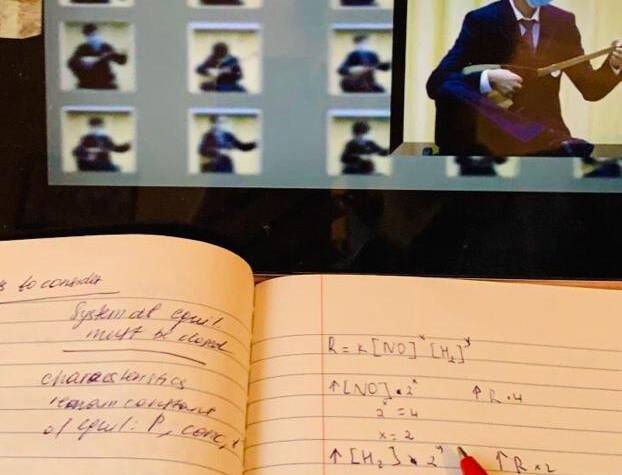 to consider
System at equil.
must be closed
characteristics
remain constant
at equil: P, conc,
R = k [NO]ˣ [H₂]ʸ
↑[NO] • 2ˣ ↑ R • 4
2ˣ = 4
x = 2
↑ [H₂] • 2ʸ ↑ R × 2